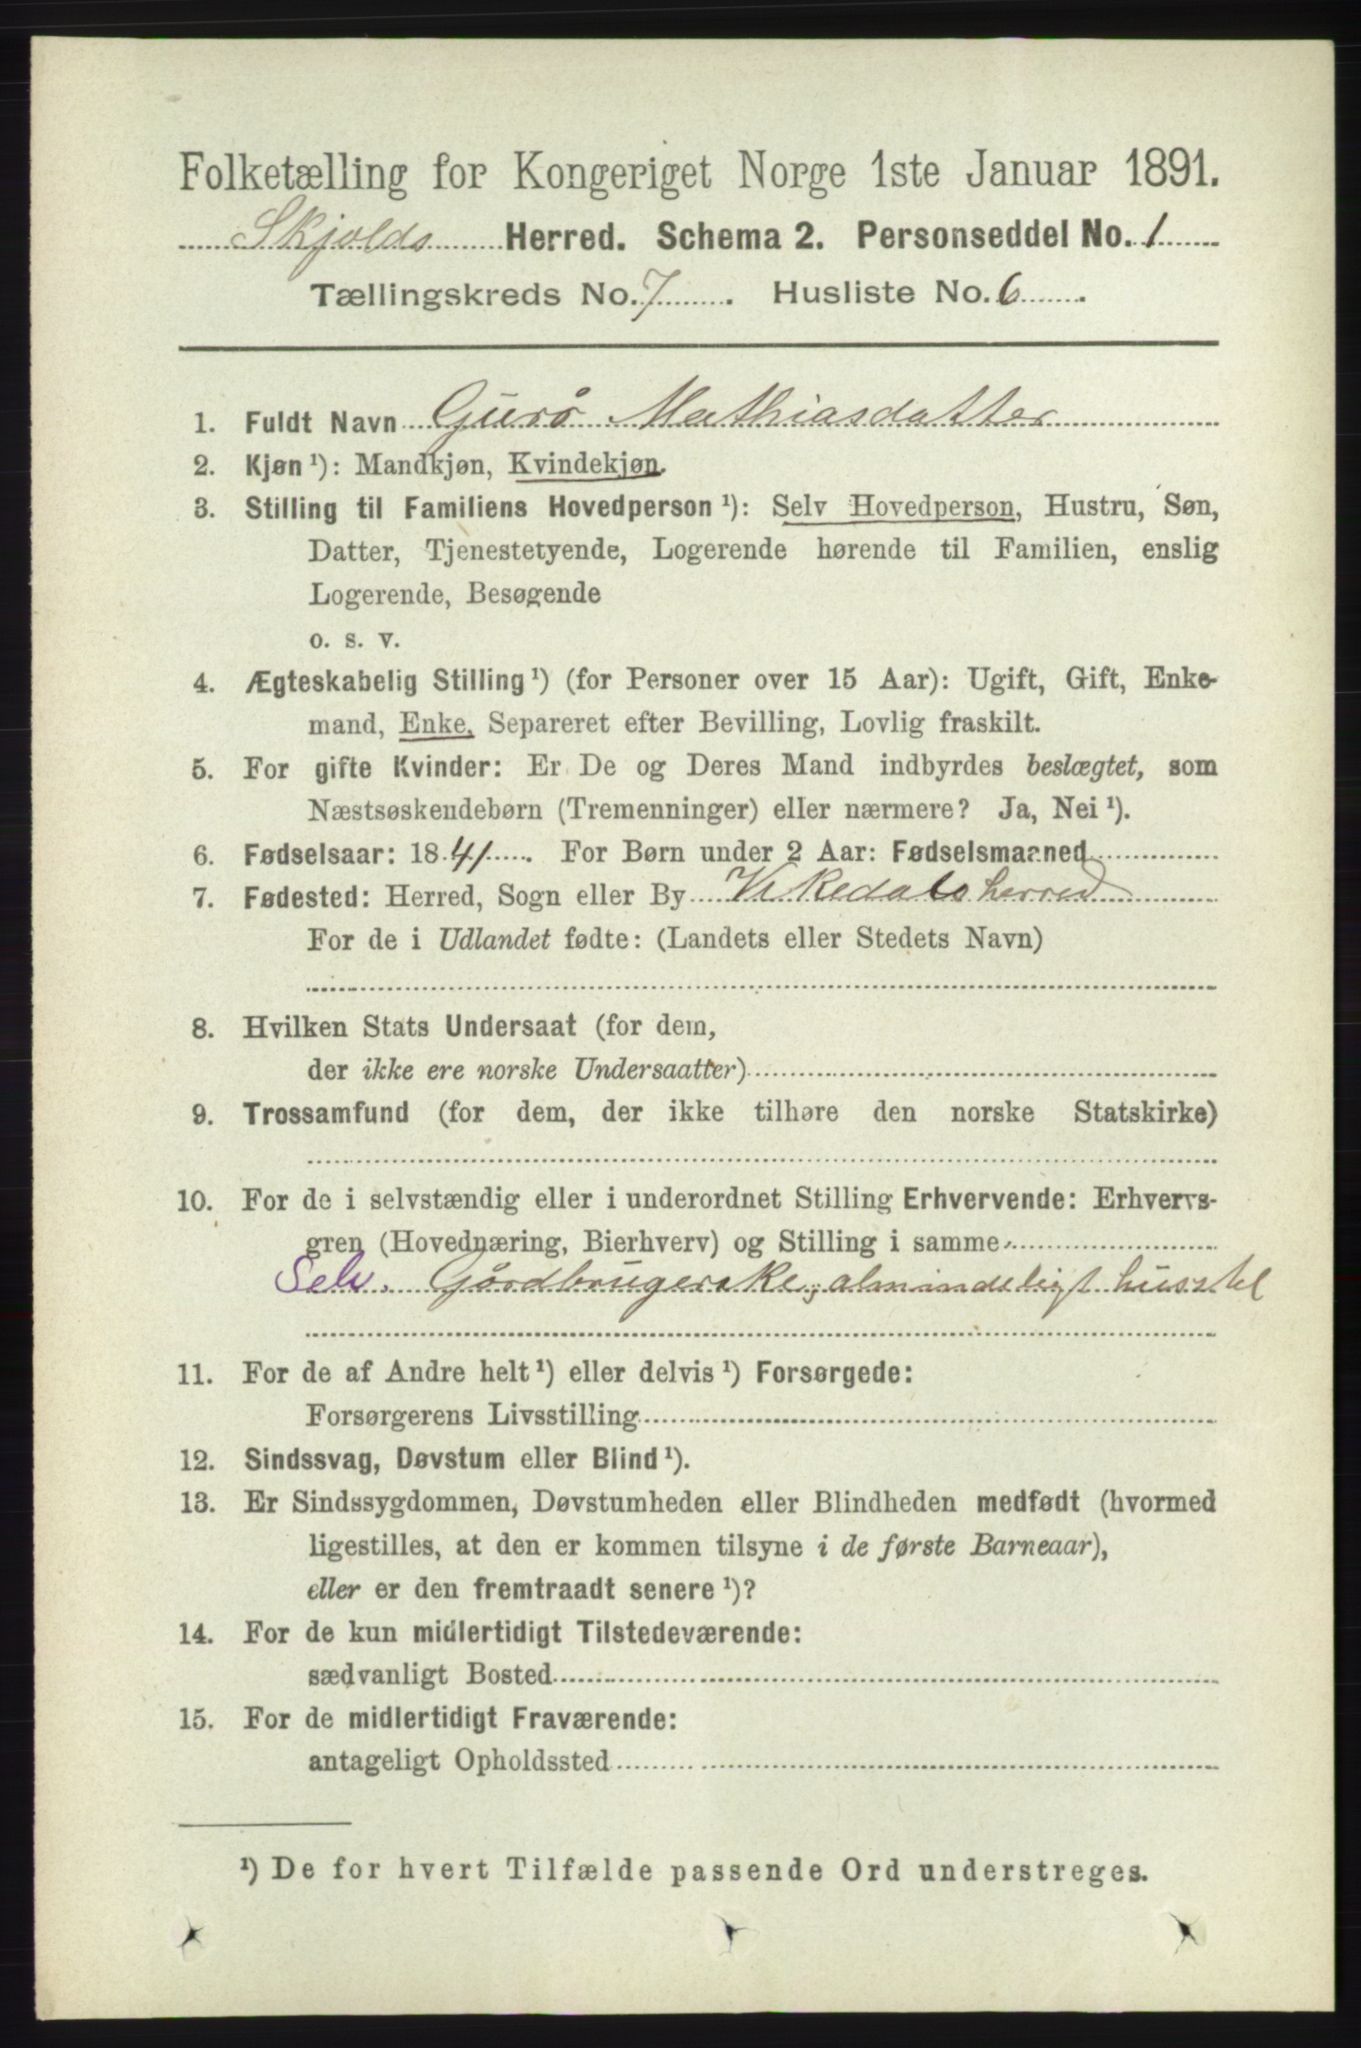 Folketælling for Kongeriget Norge 1ste Januar 1891.
Skjolds Herred. Schema 2. Personseddel No. 1
Tællingskreds No. 7. Husliste No. 6.
1. Fuldt Navn Gurå Mathiasdatter
2. Kjøn¹): Mandkjøn, Kvindekjøn.
3. Stilling til Familiens Hovedperson¹): Selv Hovedperson, Hustru, Søn,
Datter, Tjenestetyende, Logerende hørende til Familien, enslig
Logerende, Besøgende
o. s. v.
4. Ægteskabelig Stilling¹) (for Personer over 15 Aar): Ugift, Gift, Enke-
mand, Enke, Separeret efter Bevilling, Lovlig fraskilt.
5. For gifte Kvinder: Er De og Deres Mand indbyrdes beslægtet, som
Næstsøskendebørn (Tremenninger) eller nærmere? Ja, Nei¹).
6. Fødselsaar: 1841. For Børn under 2 Aar: Fødselsmaaned
7. Fødested: Herred, Sogn eller By Vikedals herred
For de i Udlandet fødte: (Landets eller Stedets Navn)
8. Hvilken Stats Undersaat (for dem,
der ikke ere norske Undersaatter)
9. Trossamfund (for dem, der ikke tilhøre den norske Statskirke)
10. For de i selvstændig eller i underordnet Stilling Erhvervende: Erhvervs-
gren (Hovednæring, Bierhverv) og Stilling i samme
Selv. Gårdbrugerske, almindeligt husstel
11. For de af Andre helt¹) eller delvis¹) Forsørgede:
Forsørgerens Livsstilling
12. Sindssvag, Døvstum eller Blind¹).
13. Er Sindssygdommen, Døvstumheden eller Blindheden medfødt (hvormed
ligestilles, at den er kommen tilsyne i de første Barneaar),
eller er den fremtraadt senere¹)?
14. For de kun midlertidigt Tilstedeværende:
sædvanligt Bosted
15. For de midlertidigt Fraværende:
antageligt Opholdssted
¹) De for hvert Tilfælde passende Ord understreges.